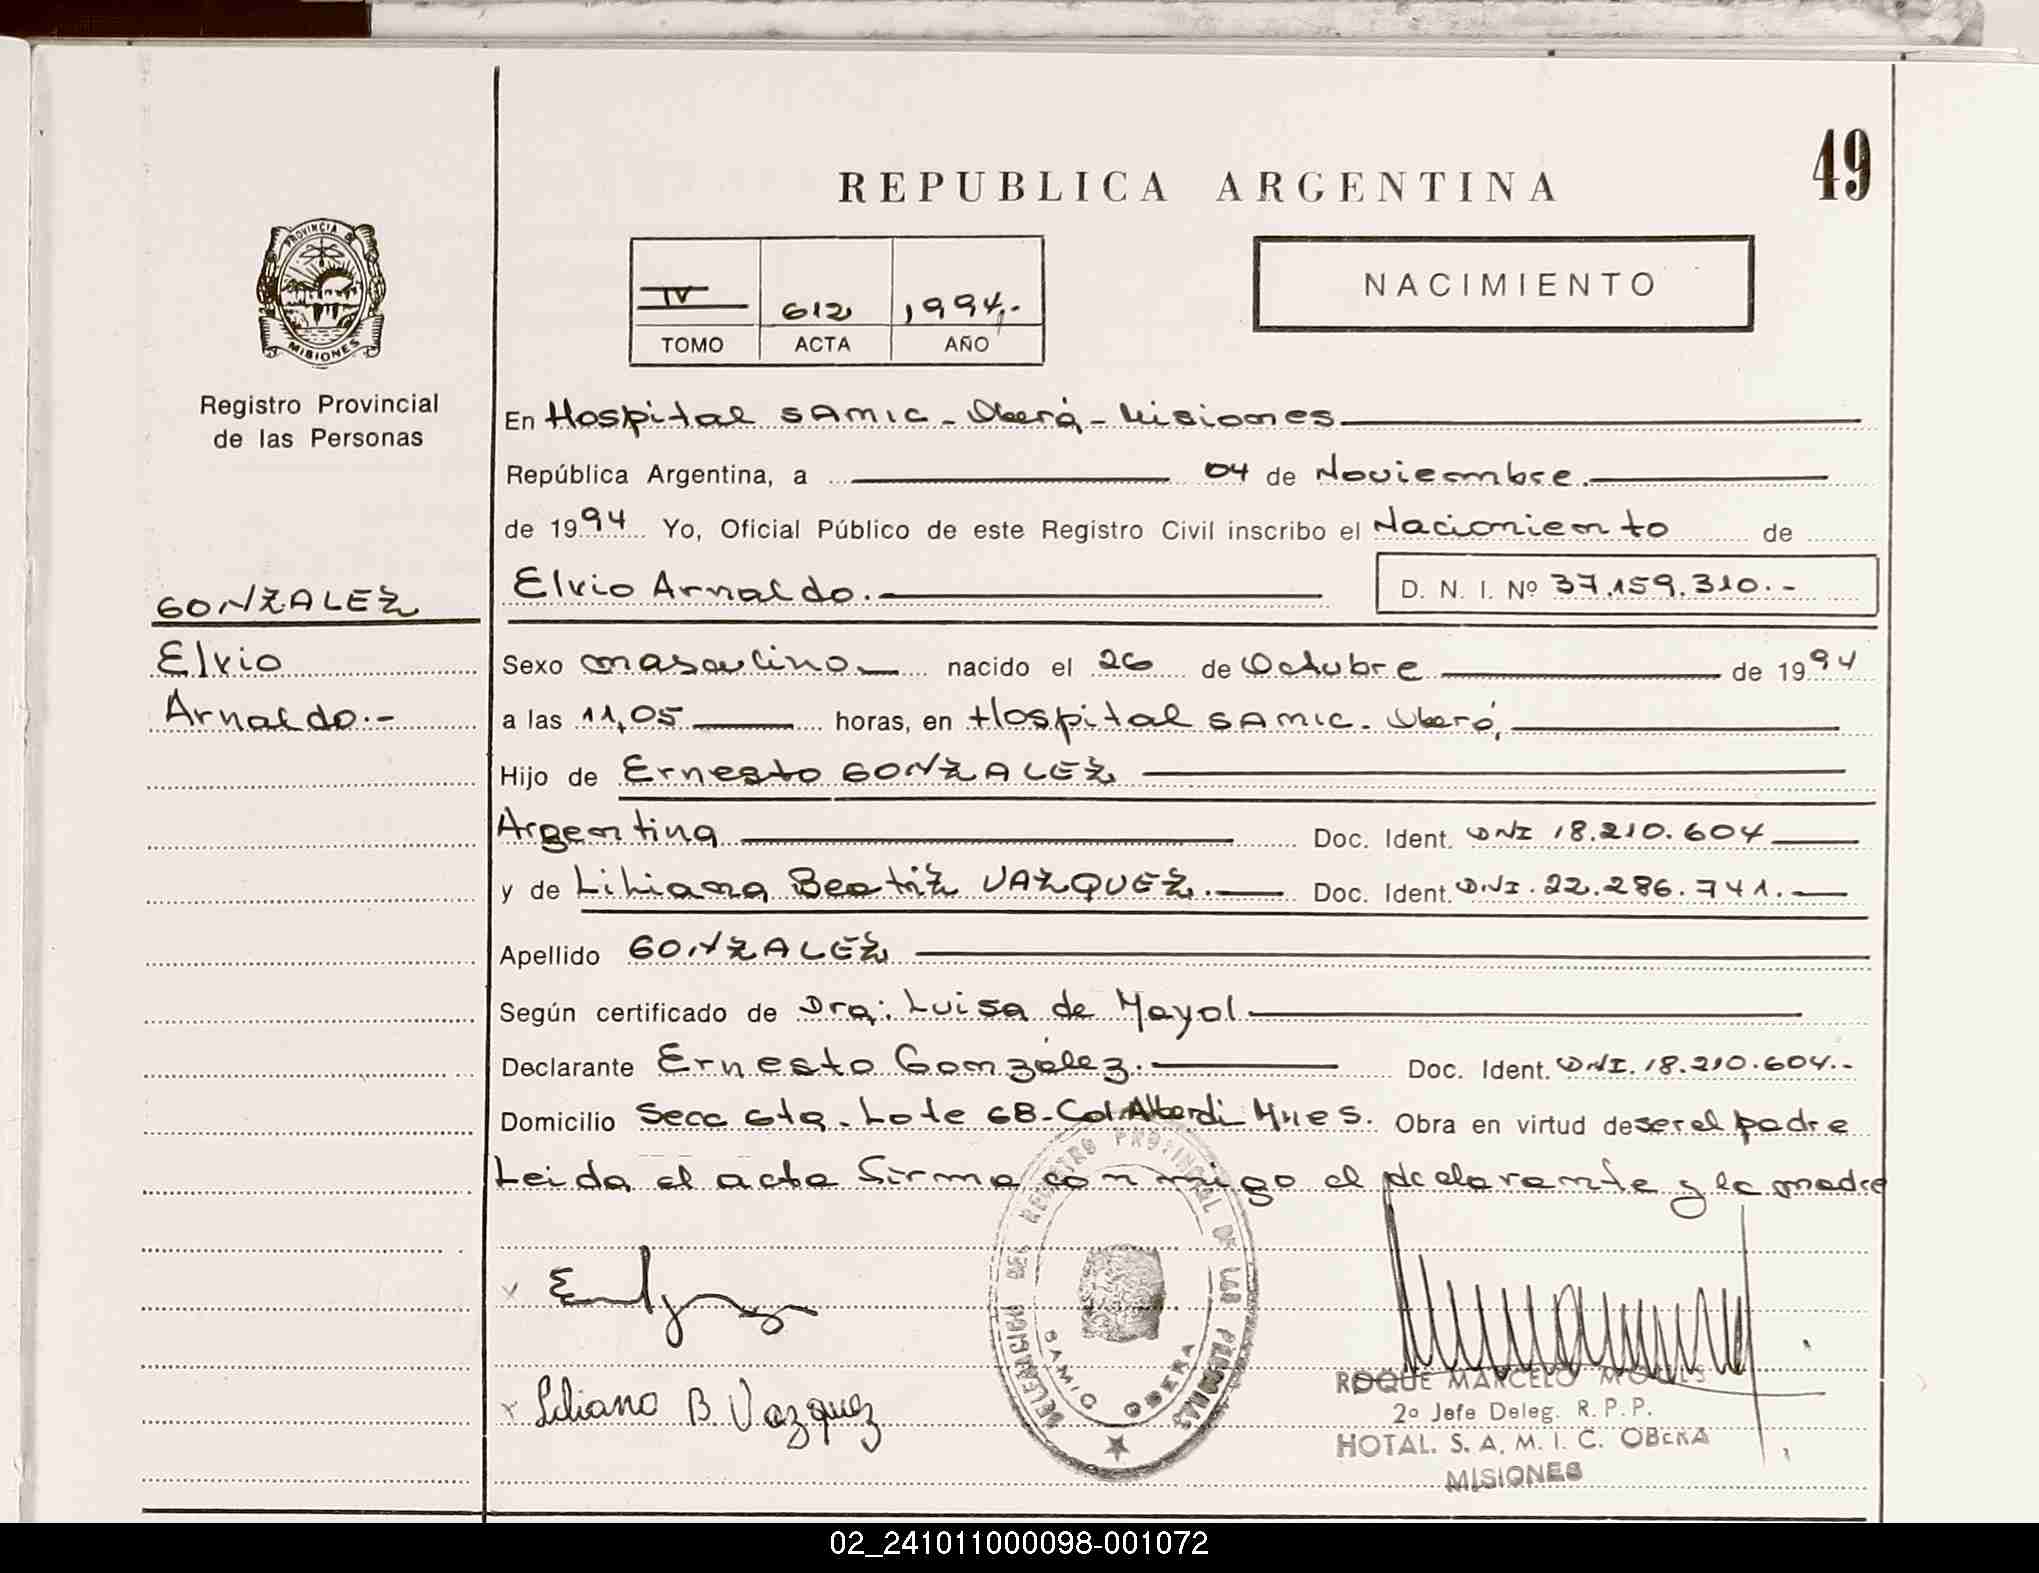 REPUBLICA ARGENTINA
49
PROVINCIA DE
MISIONES
Registro Provincial
de las Personas
IV 612 1994.-
TOMO ACTA AÑO
NACIMIENTO
En Hospital SAMIC - Oberá - Misiones
República Argentina, a 04 de Noviembre.
de 1994 Yo, Oficial Público de este Registro Civil inscribo el Nacimiento de
Elvio Arnaldo. D. N. I. Nº 37.159.310.-
GONZALEZ
Elvio
Arnaldo.-
Sexo masculino nacido el 26 de Octubre de 1994
a las 11,05 horas, en Hospital SAMIC. Oberá,
Hijo de Ernesto GONZALEZ
Argentina Doc. Ident. DNI 18.210.604
y de Liliana Beatriz VAZQUEZ. Doc. Ident. DNI. 22.286.741.
Apellido GONZALEZ
Según certificado de Dra: Luisa de Mayol
Declarante Ernesto González. Doc. Ident. DNI. 18.210.604.-
Domicilio Secc 6ta. Lote 68- Col Alberdi Mnes. Obra en virtud de ser el padre
Leida el acta firma conmigo el declarante y la madre
DELEGACION DEL REGISTRO PROVINCIAL DE LAS PERSONAS
SAMIC OBERA
Liliana B. Vazquez
ROQUE MARCELO
2º Jefe Deleg. R. P. P.
HOTAL. S. A. M. I. C. OBERA
MISIONES
02_241011000098-001072